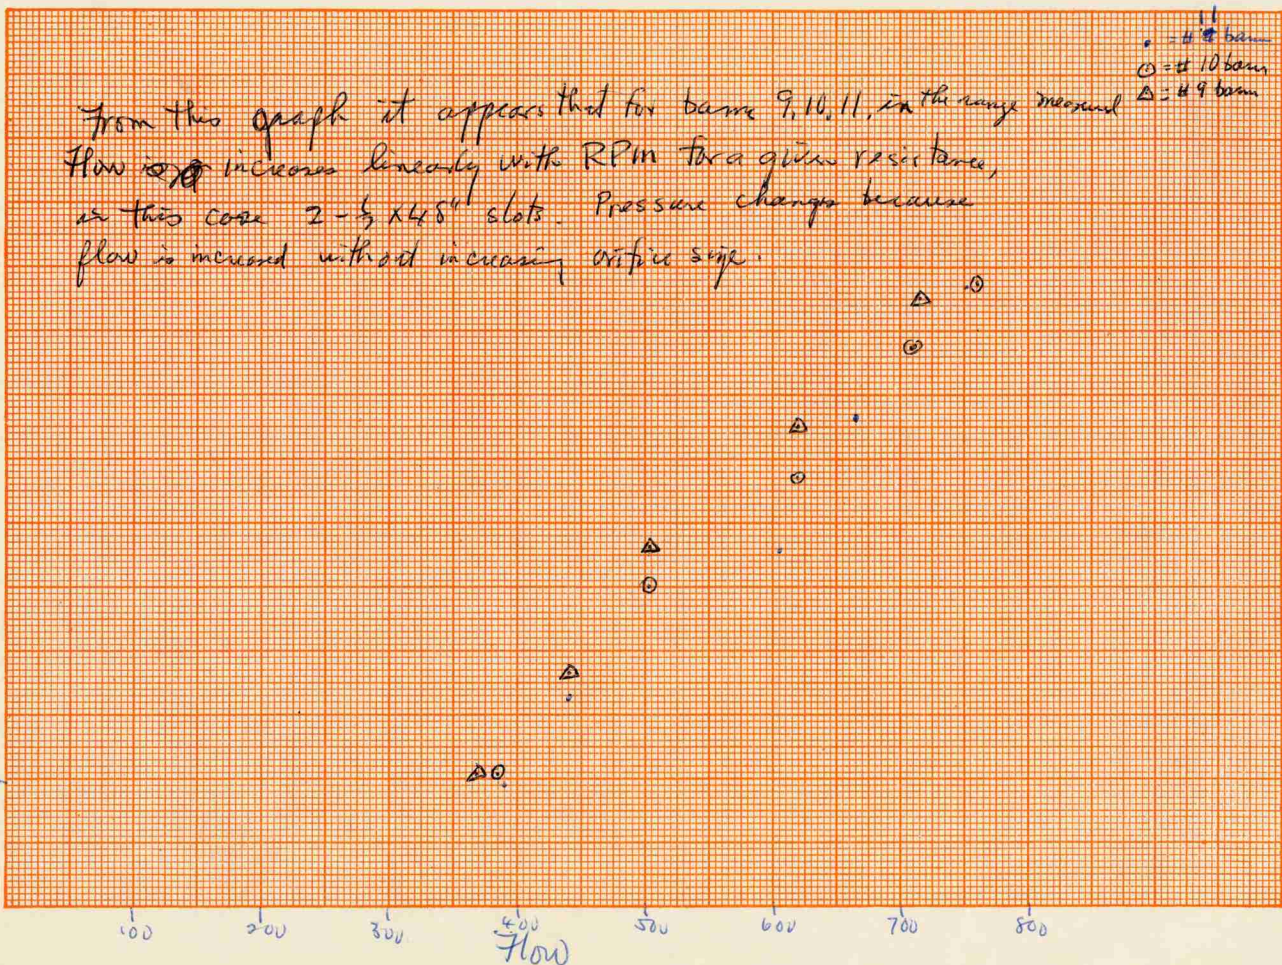 11
. = # barn
⊙ = # 10 barn
△ = # 9 barn
From this graph it appears that for barns 9, 10, 11, in the range measured
Flow increases linearly with RPM for a given resistance,
in this case 2 - x 48" slots. Pressure changes because
flow is increased without increasing orifice size.
100 200 300 400 500 600 700 800
Flow